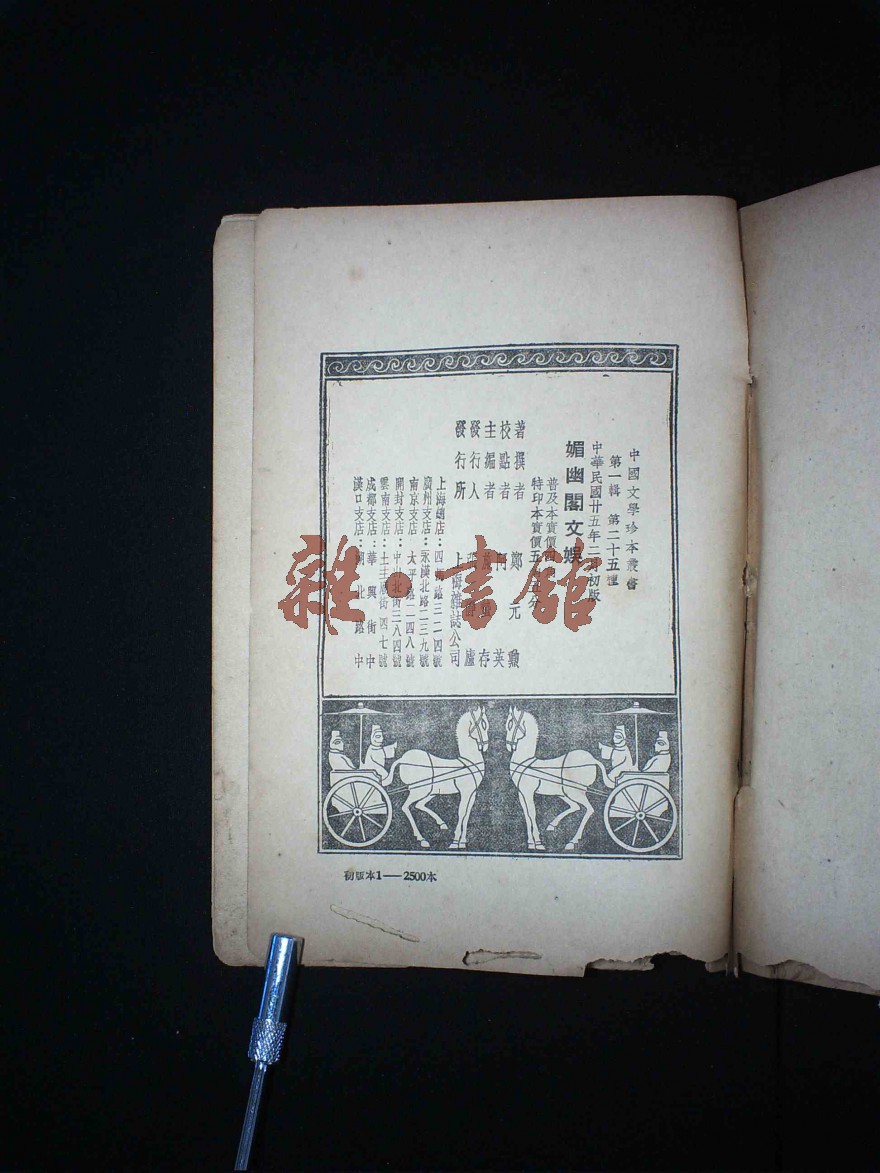 中國文學珍本叢書
第一輯 第二十五種
中華民國廿五年二月初版
媚幽閣文娛
普及本實價四
特印本實價五 五分
著撰者 鄭元勳
校點者 阿英
主編者 施 存
發行人 張 廬
發行所 上海雜誌公司
上海總店：四 路三二四號
廣州支店：永漢北路二三九號
南京支店 太平路二四八號
開封支店：中山北街三八四號
雲南支店：土主廟街四七號
成都支店：華興街中
漢口支店： 北路中
初版本1——2500本
雜·書館